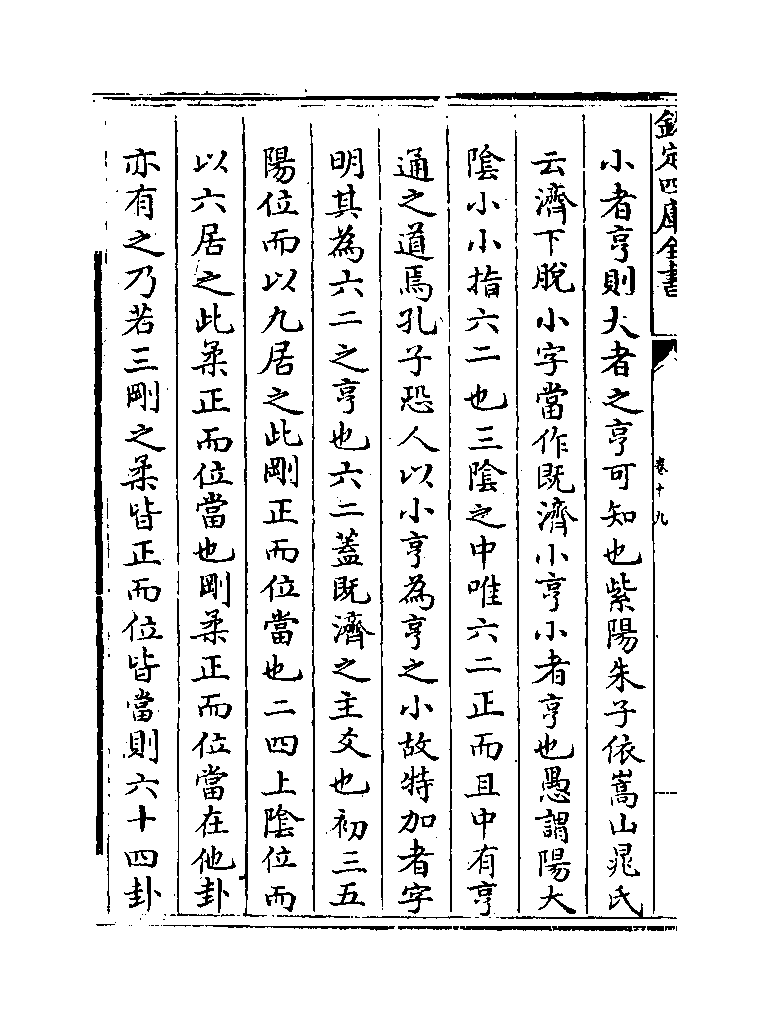 欽定四庫全書
卷十九
小者亨則大者之亨可知也紫陽朱子依嵩山晁氏
云濟下脫小字當作既濟小亨小者亨也愚謂陽大
陰小小指六二也三陰之中唯六二正而且中有亨
通之道焉孔子恐人以小亨為亨之小故特加者字
明其為六二之亨也六二蓋既濟之主爻也初三五
陽位而以九居之此剛正而位當也二四上陰位而
以六居之此柔正而位當也剛柔正而位當在他卦
亦有之乃若三剛之柔皆正而位皆當則六十四卦